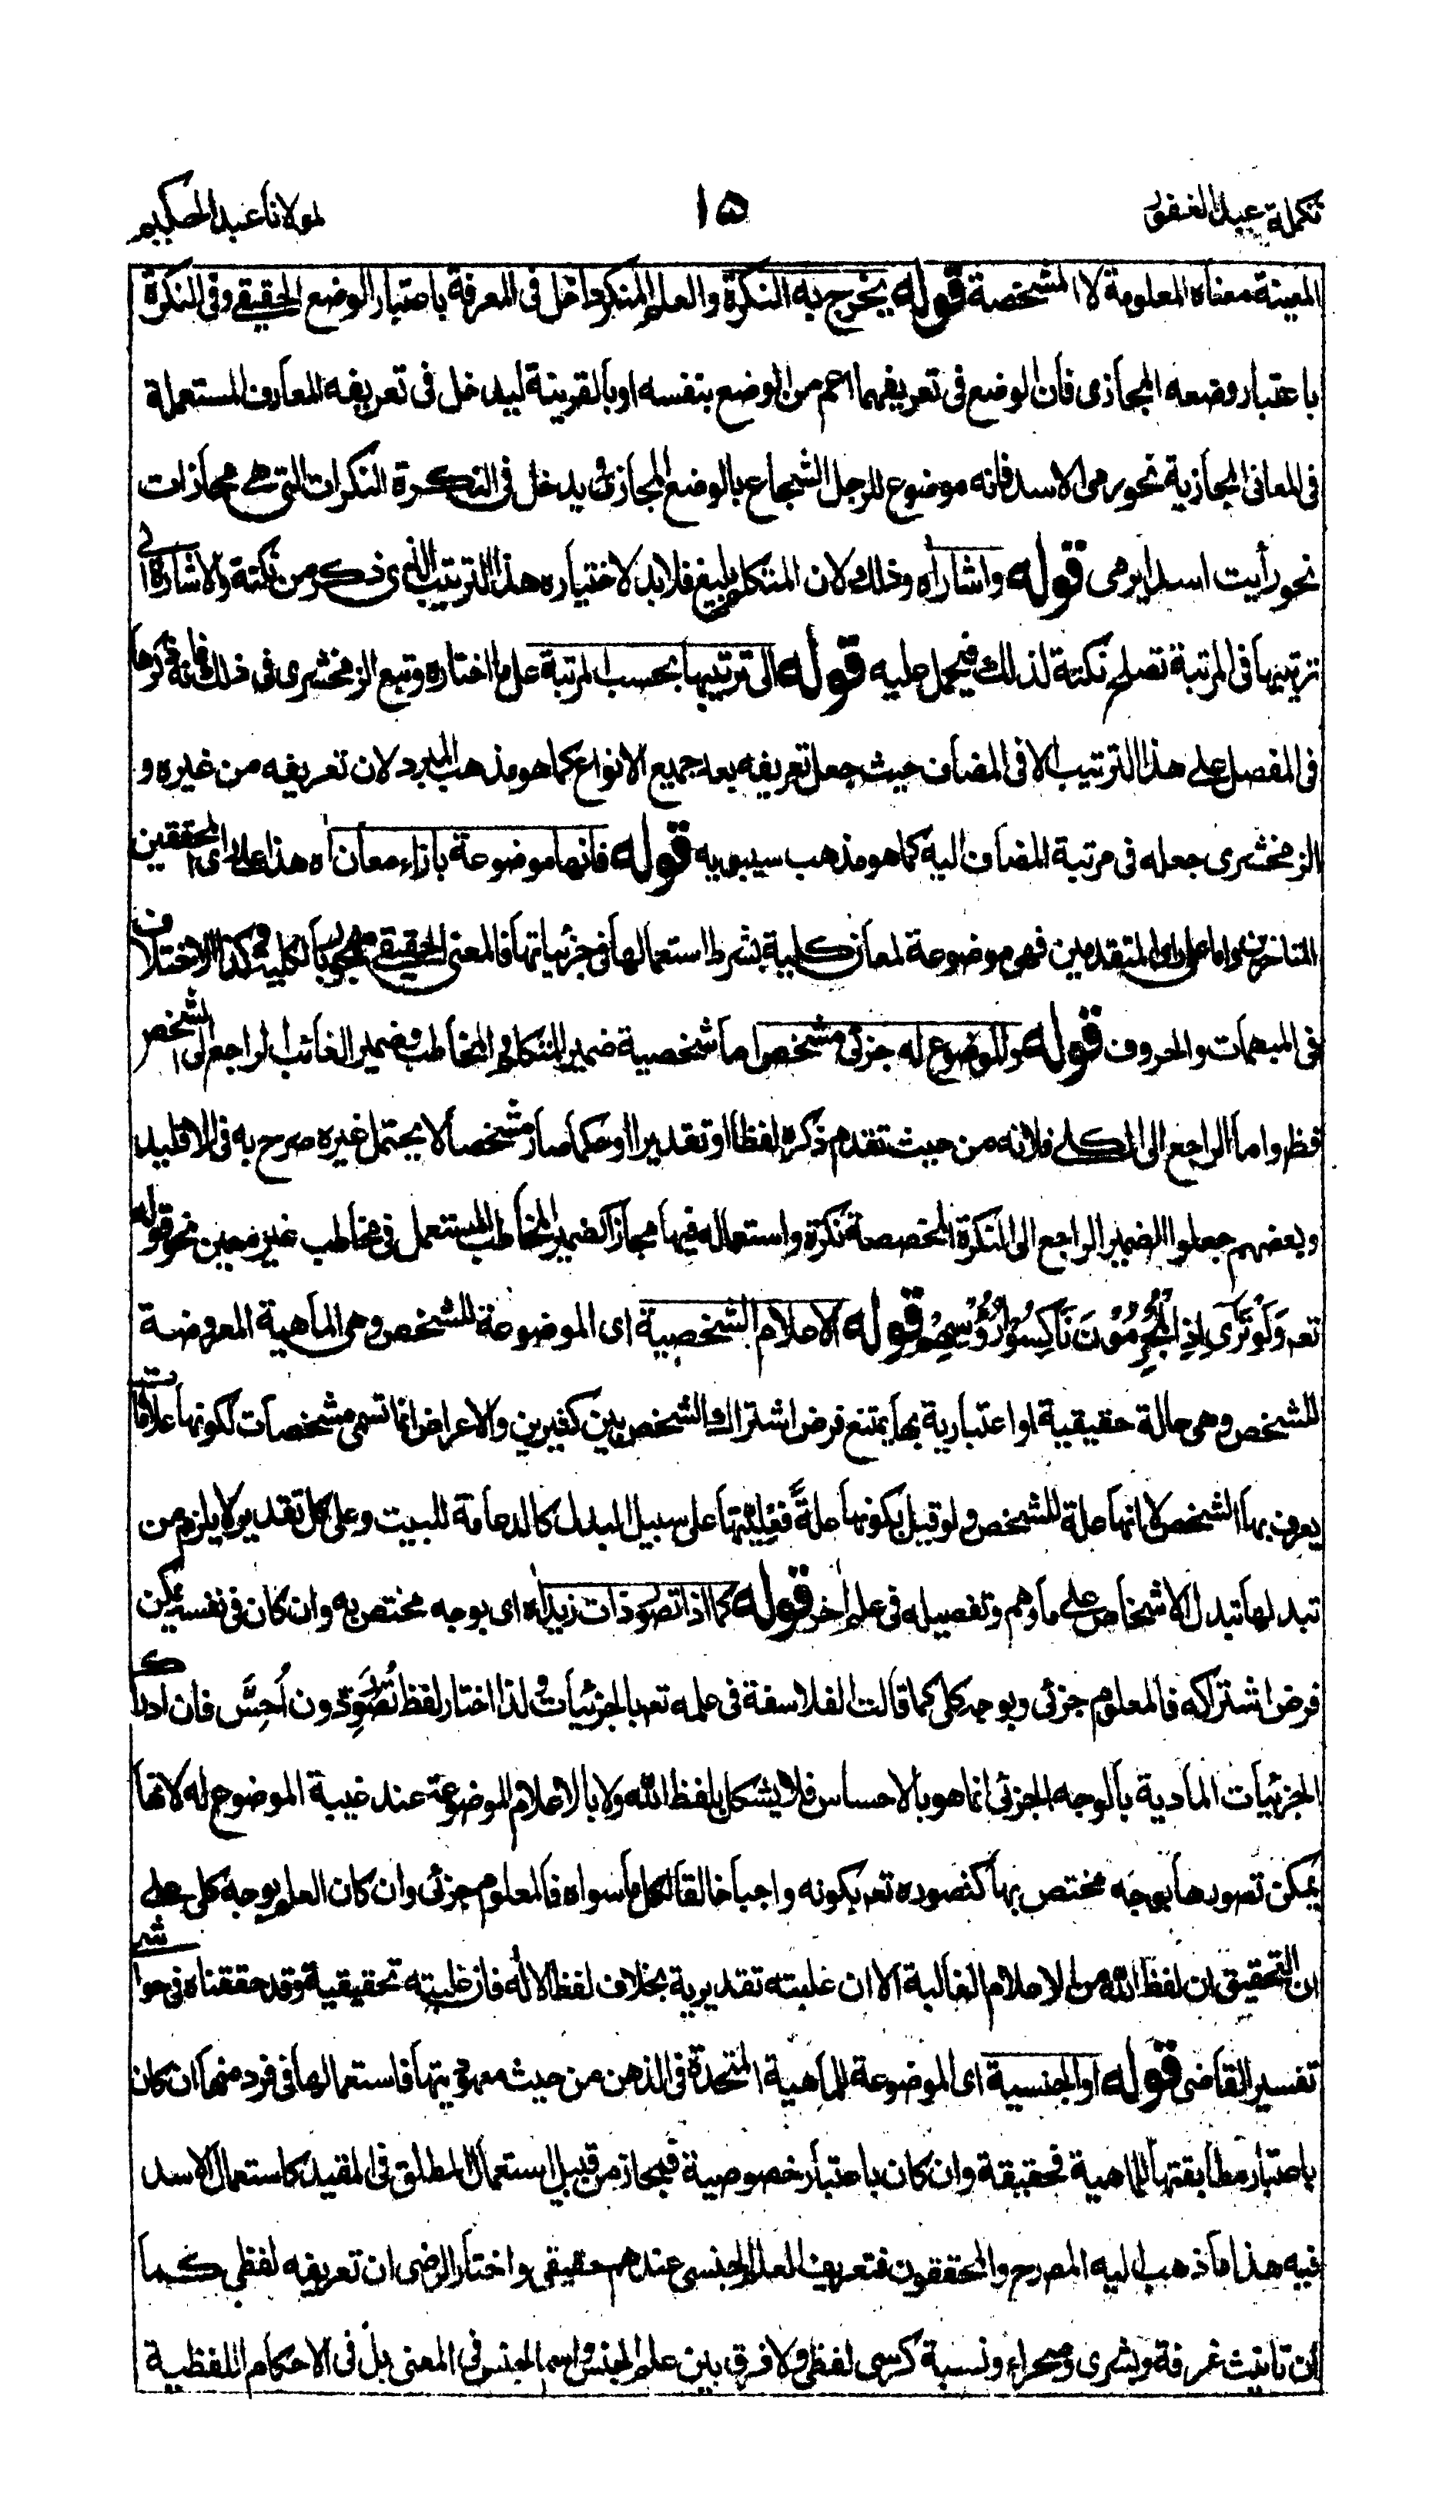 تكملة عبد الغفور
١٥
لمولانا عبد الحكيم
المعينة معناه المعلومة لا المشخصة قوله يخرج به النكرة والعلم المنكر داخل فى المعرفة باعتبار الوضع الحقيقى وفى النكرة
باعتبار وضعه المجازى فان الوضع فى تعريفهما اعم من الوضع بنفسه او بالقرينة ليدخل فى تعريفه المعارف المستعملة
فى المعانى المجازية نحو يرمى الاسد فانه موضوع للرجل الشجاع بالوضع المجازى ويدخل فى النكرة النكرات التى هى مجازات
نحو رأيت اسدا يرمى قوله واشار اه وذلك لان المتكلم بليغ فلابد لاختياره هذا الترتيب الذى ذكر من نكتة والاشارة الى
ترتيبها فى المرتبة تصلح نكتة لذلك فيحمل عليه قوله الى ترتيبها بحسب المرتبة على ما اختاره وتبع الزمخشرى فى ذلك فانه ذكرها
فى المفصل على هذا الترتيب الا فى المضاف حيث جعل تعريفه بعد جميع الانواع كما هو مذهب المبرد لان تعريفه من غيره و
الزمخشرى جعله فى مرتبة المضاف اليه كما هو مذهب سيبويه قوله فانها موضوعة بازاء معان اه هذا على راى المحققين
المتاخرين واما على راى المتقدمين فهى موضوعة لمعان كلية بشرط استعمالها فى جزئياتها فالمعنى الحقيقى مهجور بالكلية وكذا الاختلاف
فى المبهمات والحروف قوله والموضوع له جزئى مشخص اما شخصية ضمير المتكلم والمخاطب وضمير الغائب الراجع الى الشخص
فظ واما الراجع الى الكلى فلانه من حيث تقدم ذكره لفظا او تقديرا او حكما صار مشخصا لا يحتمل غيره صرح به فى الاقليد
وبعضهم جعلوا الضمير الراجع الى النكرة المخصصة نكرة واستعماله فيها مجازا كضمير المخاطب المستعمل فى مخاطب غير معين نحو قوله
تعه وَلَوْ تَرَى اِذِ الْمُجْرِمُوْنَ نَاكِسُوْا رُؤُسِهِمْ قوله الاعلام الشخصية اى الموضوعة للشخص وهى الماهية المعروضة
للتشخص وهى حالة حقيقية او اعتبارية بها يمتنع فرض اشتراك الشخص بين كثيرين والاعراض انما تسمى مشخصات لكونها علامات
يعرف بها التشخص لا انها علة للتشخص ولو قيل بكونها علةً فعِلِّيّتها على سبيل البدل كالدعامة للبيت وعلى كل تقدير لا يلزم من
تبدلها تبدل الاشخاص على ما وهم وتفصيله فى علم اخر قوله كما اذا تصور ذات زيد اه اى بوجه مختص به وان كان فى نفسه يمكن
فرض اشتراكه فالمعلوم جزئى وبوجه كلى كما قالت الفلاسفة فى علمه تعه بالجزئيات ولذا اختار لفظ تُصُوِّر دون اُحِسَّ فان ادراك
الجزئيات المادية بالوجه الجزئى انما هو بالاحساس فلا يشكل بلفظ الله ولا بالاعلام الموضوعة عند غيبة الموضوع له لانها
يمكن تصورها بوجه مختص بها كتصوره تعه بكونه واجبا خالقا لكل ما سواه فالمعلوم جزئى وان كان العلم بوجه كلى على
ان التحقيق ان لفظ الله من الاعلام الغالبة الا ان غلبته تقديرية بخلاف لفظ الاله فان غلبته تحقيقية وقد حققناه فى حواشى
تفسير القاضى قوله او الجنسية اى الموضوعة للماهية المتحدة فى الذهن من حيث معهوديتها فاستعمالها فى فرد منها ان كان
باعتبار مطابقتها للماهية فحقيقة وان كان باعتبار خصوصية فمجاز من قبيل استعمال المطلق فى المقيد كاستعمال الاسد
فيه هذا ما ذهب اليه المصرح والمحققون فتعريف العلم الجنسى عندهم حقيقى واختار الرضى ان تعريفه لفظى كما
ان تانيث غرفة وبشرى وصحراء ونسبة كرسى لفظى ولا فرق بين علم الجنس واسم الجنس فى المعنى بل فى الاحكام اللفظية